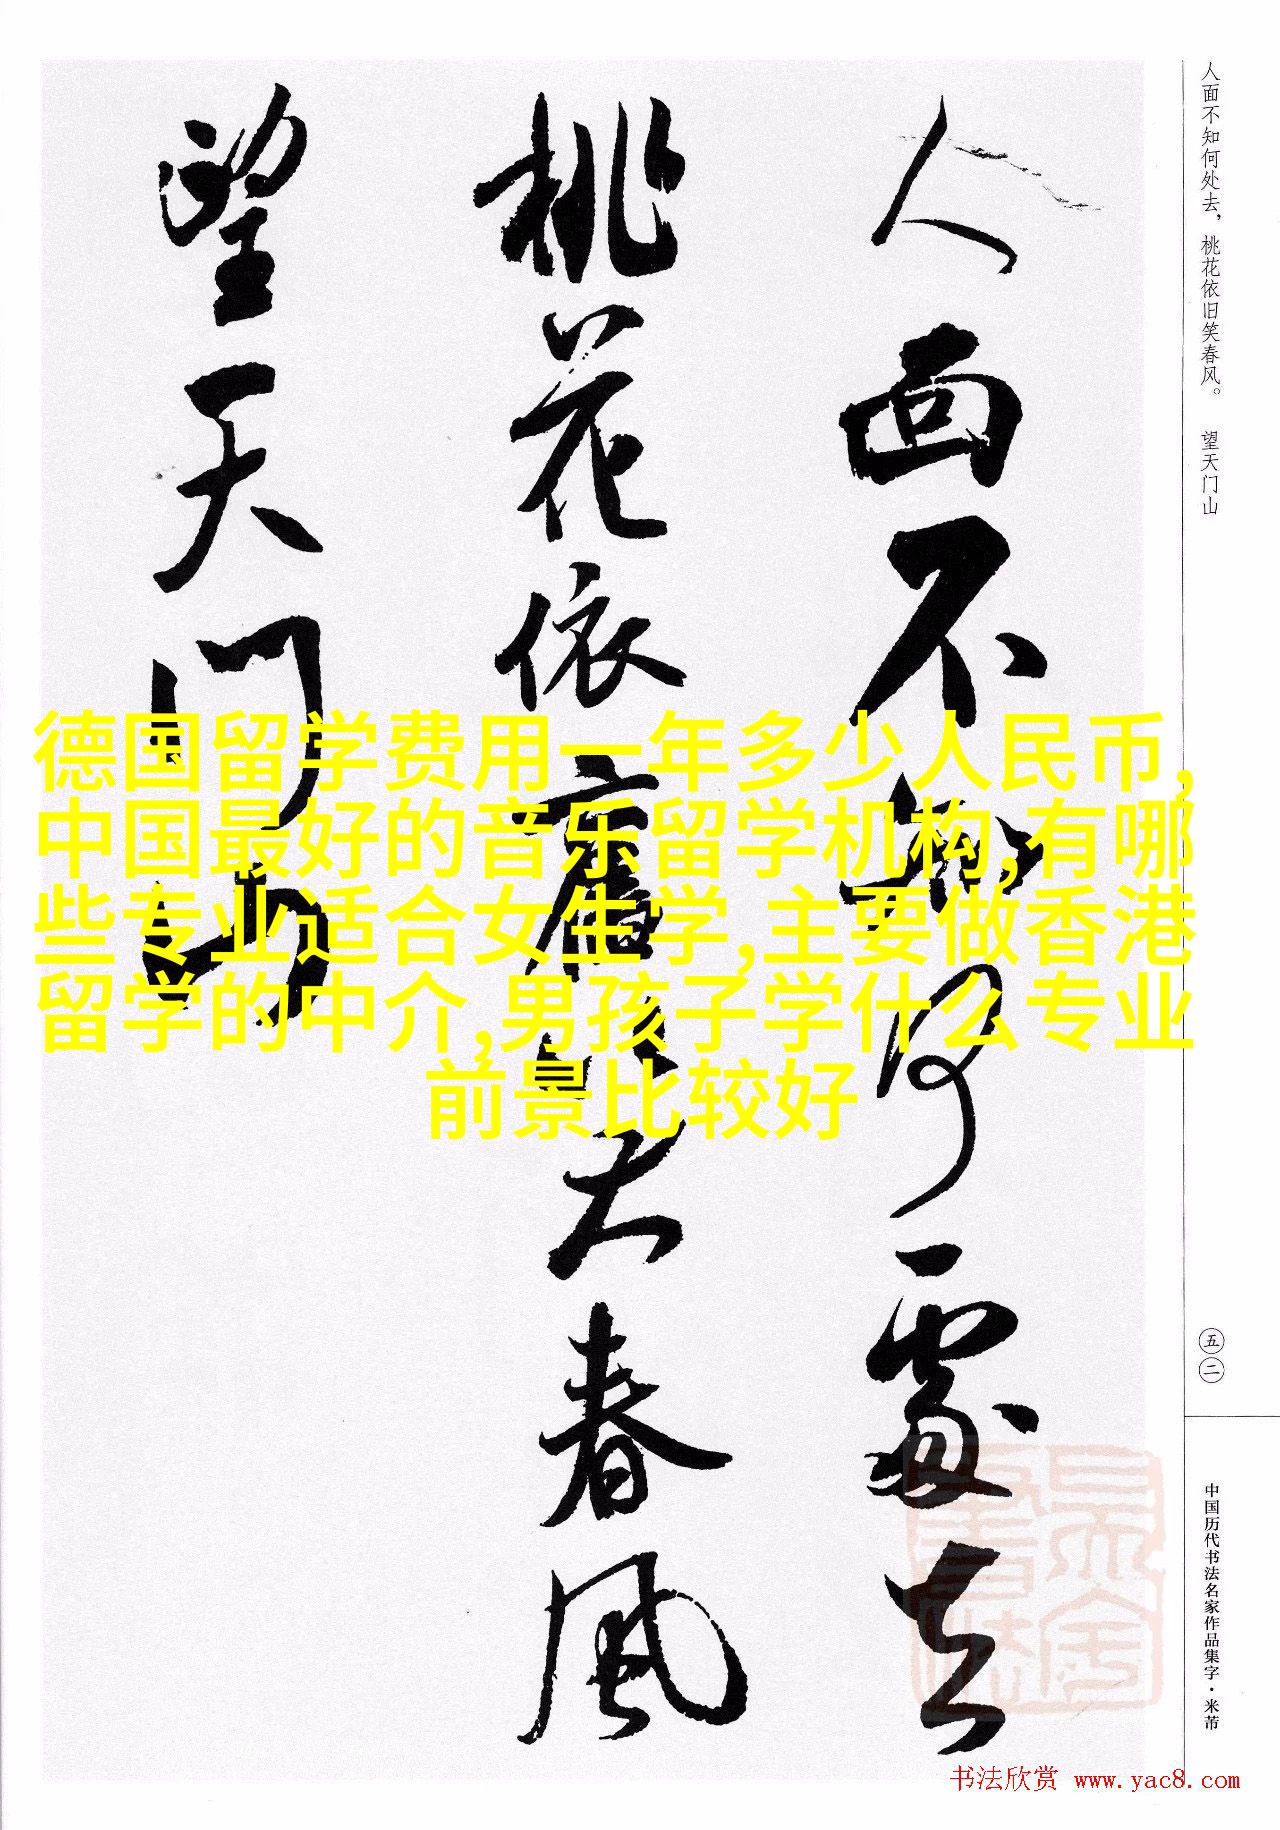 人面不知何处去，桃花依旧笑春风。 望天门山
人面不知何處去
桃花依舊笑春風
望天门山
德国留学费用一年多少人民币,
中国最好的音乐留学机构,有哪
些专业适合女生学,主要做香港
留学的中介,男孩子学什么专业
前景比较好
五二
中国历代书法名家作品集字·米芾
书法欣赏 www.yac8.com